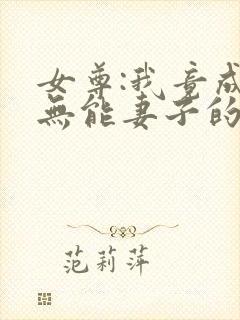 女尊:我竟成
無能妻子的
范莉萍